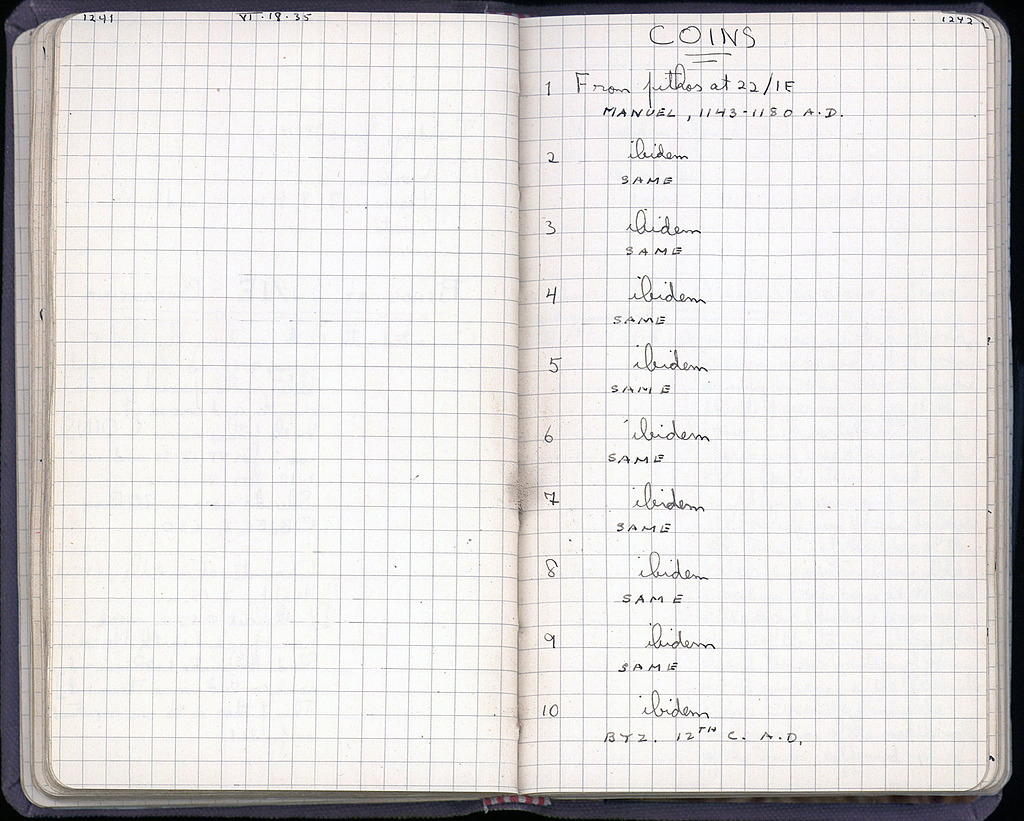 1241
VI·18·35
1242
COINS
1 From pithos at 22/1E
MANUEL, 1143-1180 A.D.
2 ibidem
SAME
3 ibidem
SAME
4 ibidem
SAME
5 ibidem
SAME
6 ibidem
SAME
7 ibidem
SAME
8 ibidem
SAME
9 ibidem
SAME
10 ibidem
BYZ. 12TH C. A.D.